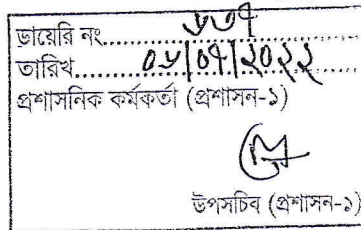 ডায়েরি নং..................
তারিখ.....০৬|০৭|২০২২.....
প্রশাসনিক কর্মকর্তা (প্রশাসন-১)
উপসচিব (প্রশাসন-১)